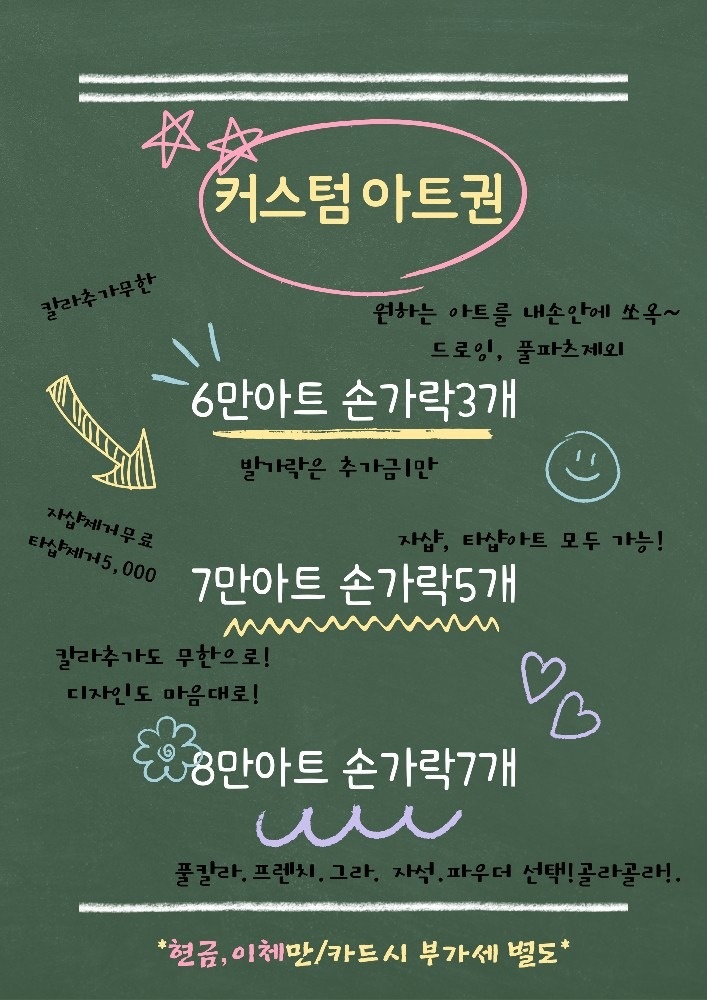 커스텀 아트권
칼라추가무한
원하는 아트를 내손안에 쏘옥~
드로잉, 풀파츠제외
6만아트 손가락3개
발가락은 추가금1만
자샵제거무료
타샵제거5,000
자샵, 타샵아트 모두 가능!
7만아트 손가락5개
칼라추가도 무한으로!
디자인도 마음대로!
8만아트 손가락7개
풀칼라.프렌치.그라. 자석.파우더 선택!골라골라!.
*현금,이체만/카드시 부가세 별도*